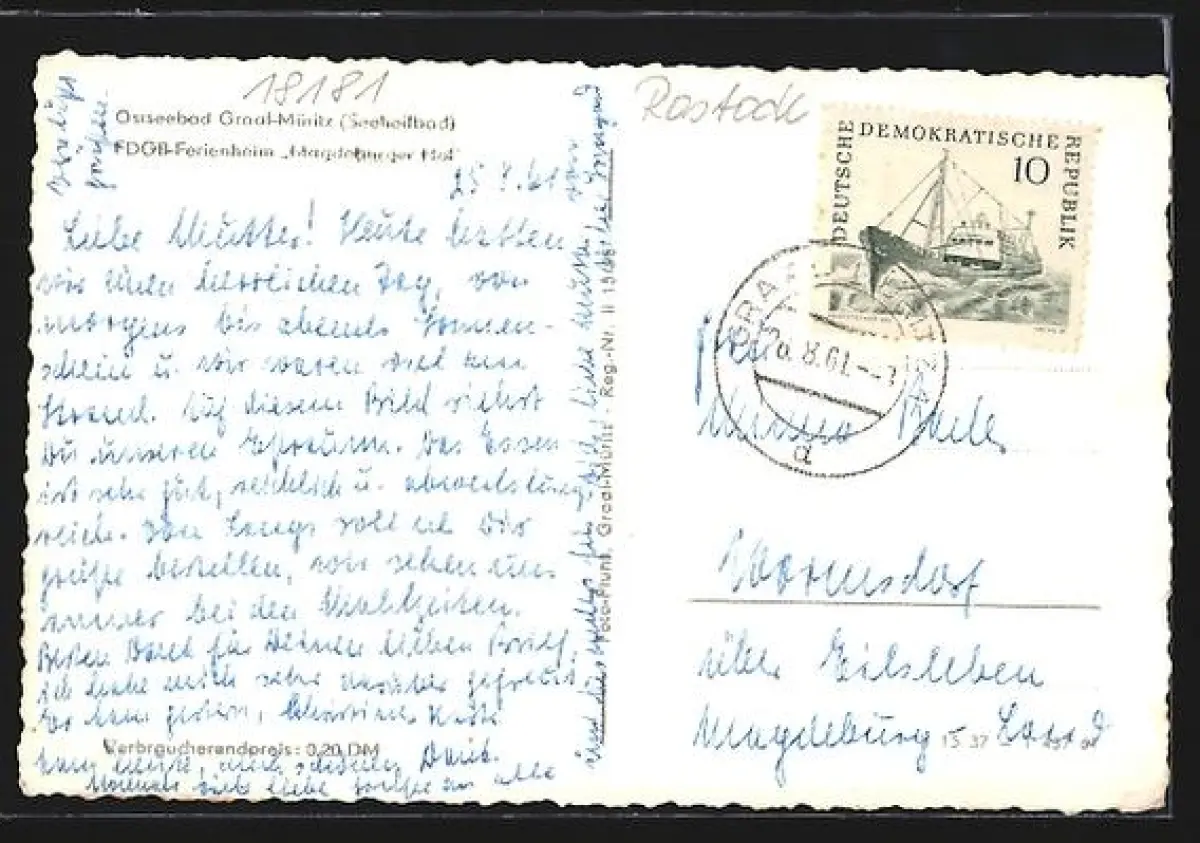 18181
Ostseebad Graal-Müritz (Seeheilbad)
FDGB-Ferienheim „Magdeburger Hof"
25.8.61
Liebe Mutter! Heute hatten
wir einen herrlichen Tag, von
morgens bis abends Sonnen-
schein u. wir waren viel am
Strand. Auf diesem Bild siehst
Du unseren Eßraum. Das Essen
ist sehr gut, reichlich u. abwechslungs-
reich. Von Langs soll ich Dir
Grüße bestellen, wir sehen uns
immer bei den Mahlzeiten.
Besten Dank für Deinen lieben Brief,
ich habe mich sehr darüber gefreut.
Er kam gestern, Christines Karte
kam heute, auch schönen Dank.
Nochmals viele liebe Grüße an alle
Verbraucherendpreis: 0,20 DM
Foto-Plunt, Graal-Müritz - Reg.-Nr. II 15
Rostock
DEUTSCHE DEMOKRATISCHE REPUBLIK
10
GRAAL-MÜRITZ
8.61
a
Frau
Minna
Wormsdorf
über Eilsleben
Magdeburg Land
15 37